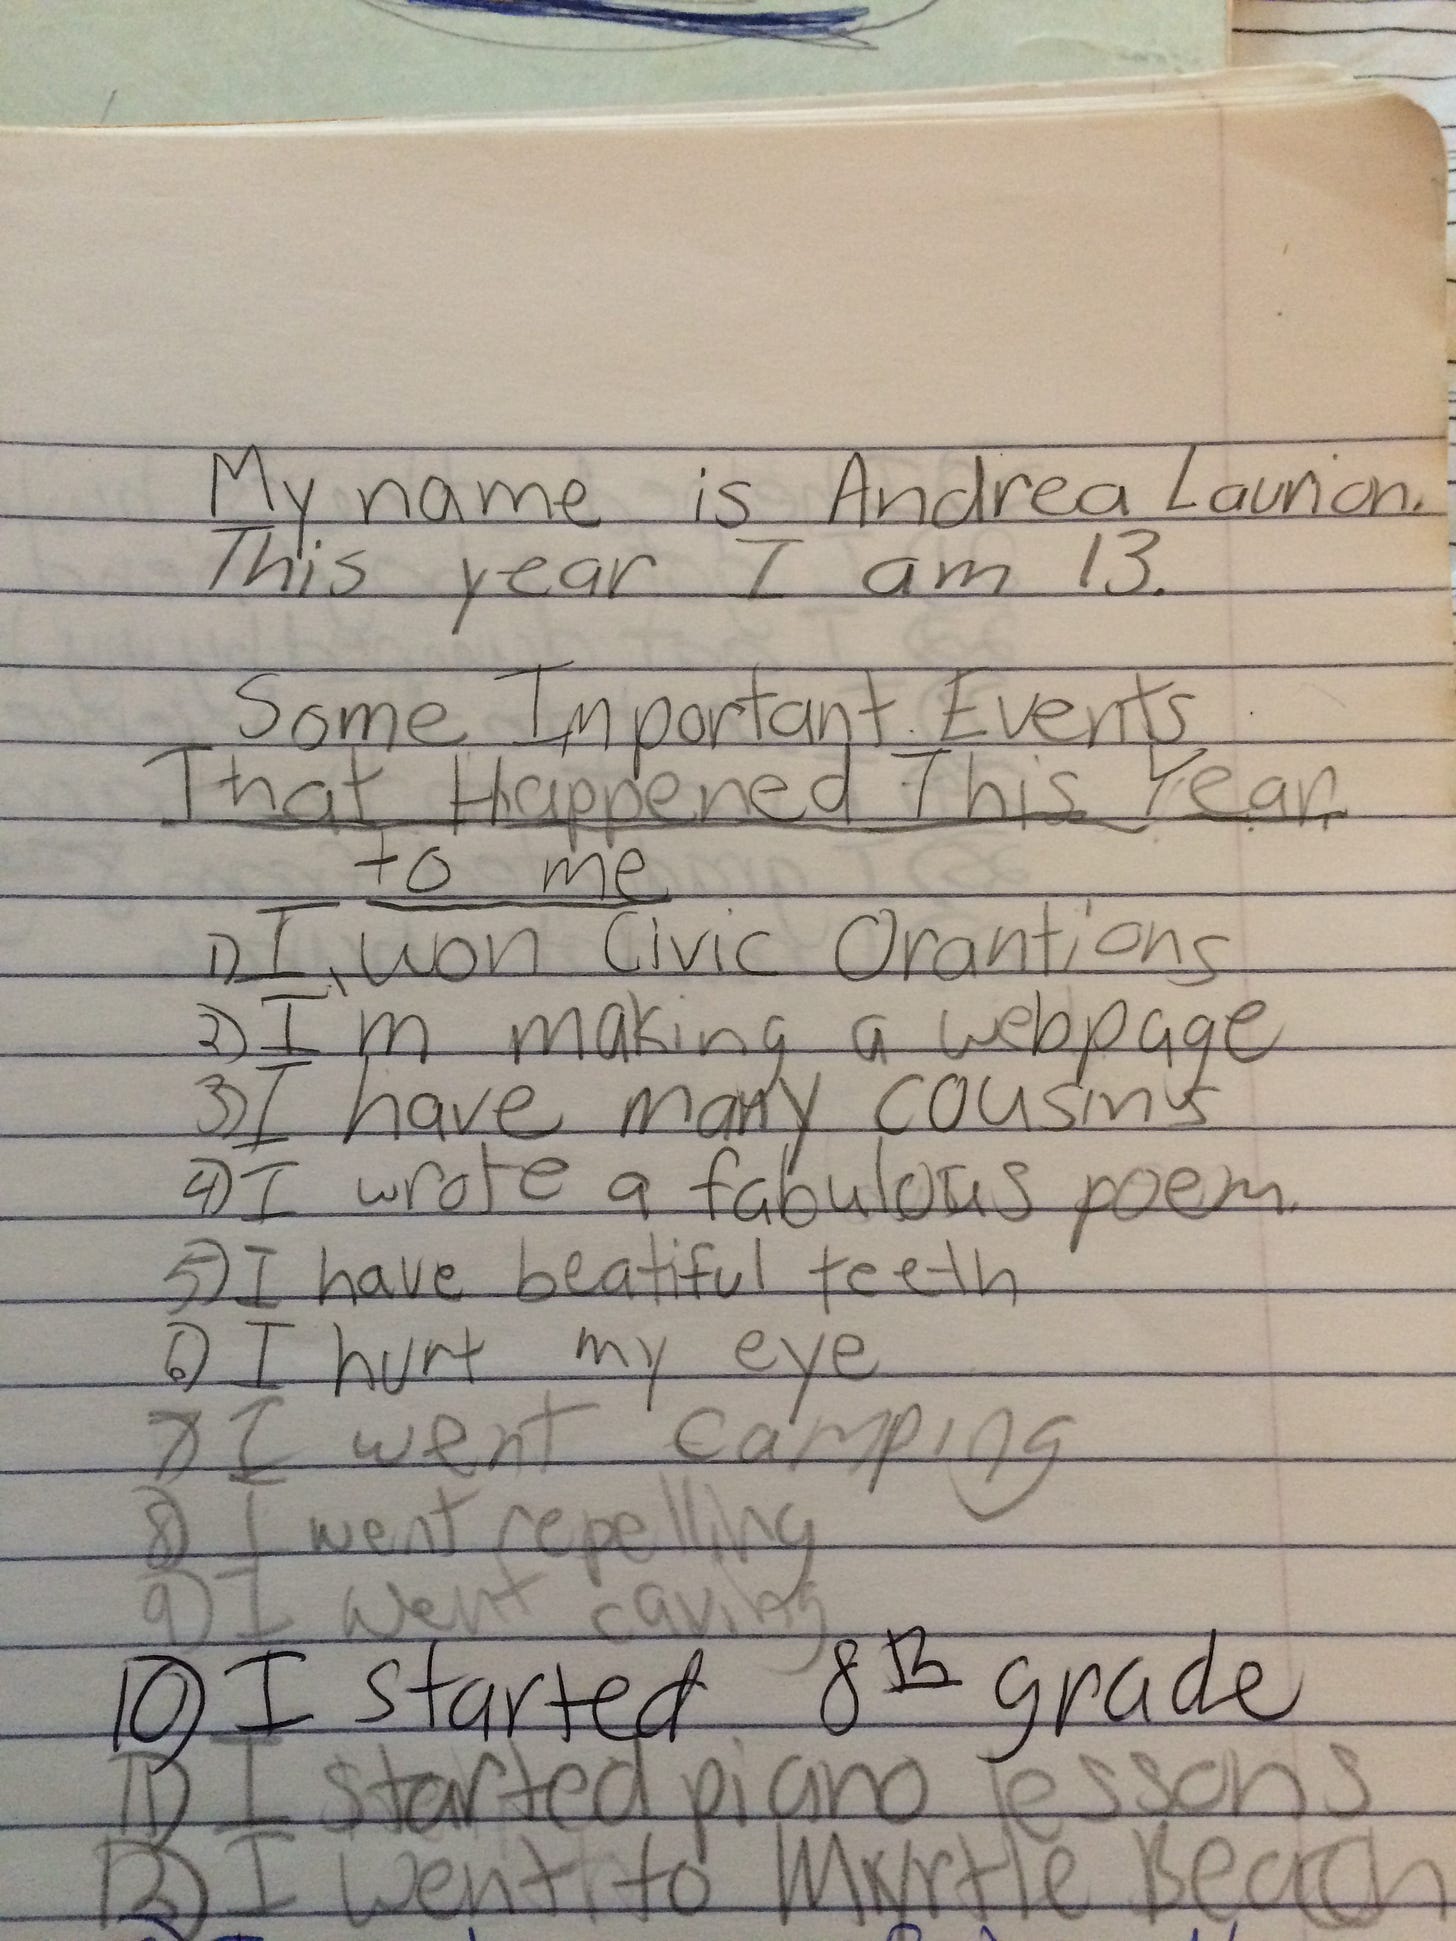 My name is Andrea Launon.
This year I am 13.
Some Important Events
That Happened This Year
to me
1) I won Civic Orantions
2) I'm making a webpage
3) I have many cousins
4) I wrote a fabulous poem.
5) I have beatiful teeth
6) I hurt my eye
7) I went camping
8) I went repelling
9) I went caving
10) I started 8th grade
11) I started piano lessons
12) I went to Myrtle Beach